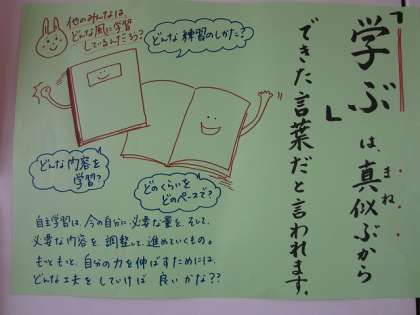 「学ぶ」は、真似ぶから
まね
できた言葉だと言われます。
他のみんなは
どんな風に学習
しているんだろう?
どんな練習のしかた?
どんな内容を
学習?
どのくらいを
どのペースで?
自主学習は、今の自分に必要な量を、そして、
必要な内容を、調整して、進めていくもの。
もっともっと、自分の力を伸ばすためには、
どんな工夫をしていけば良いかな??